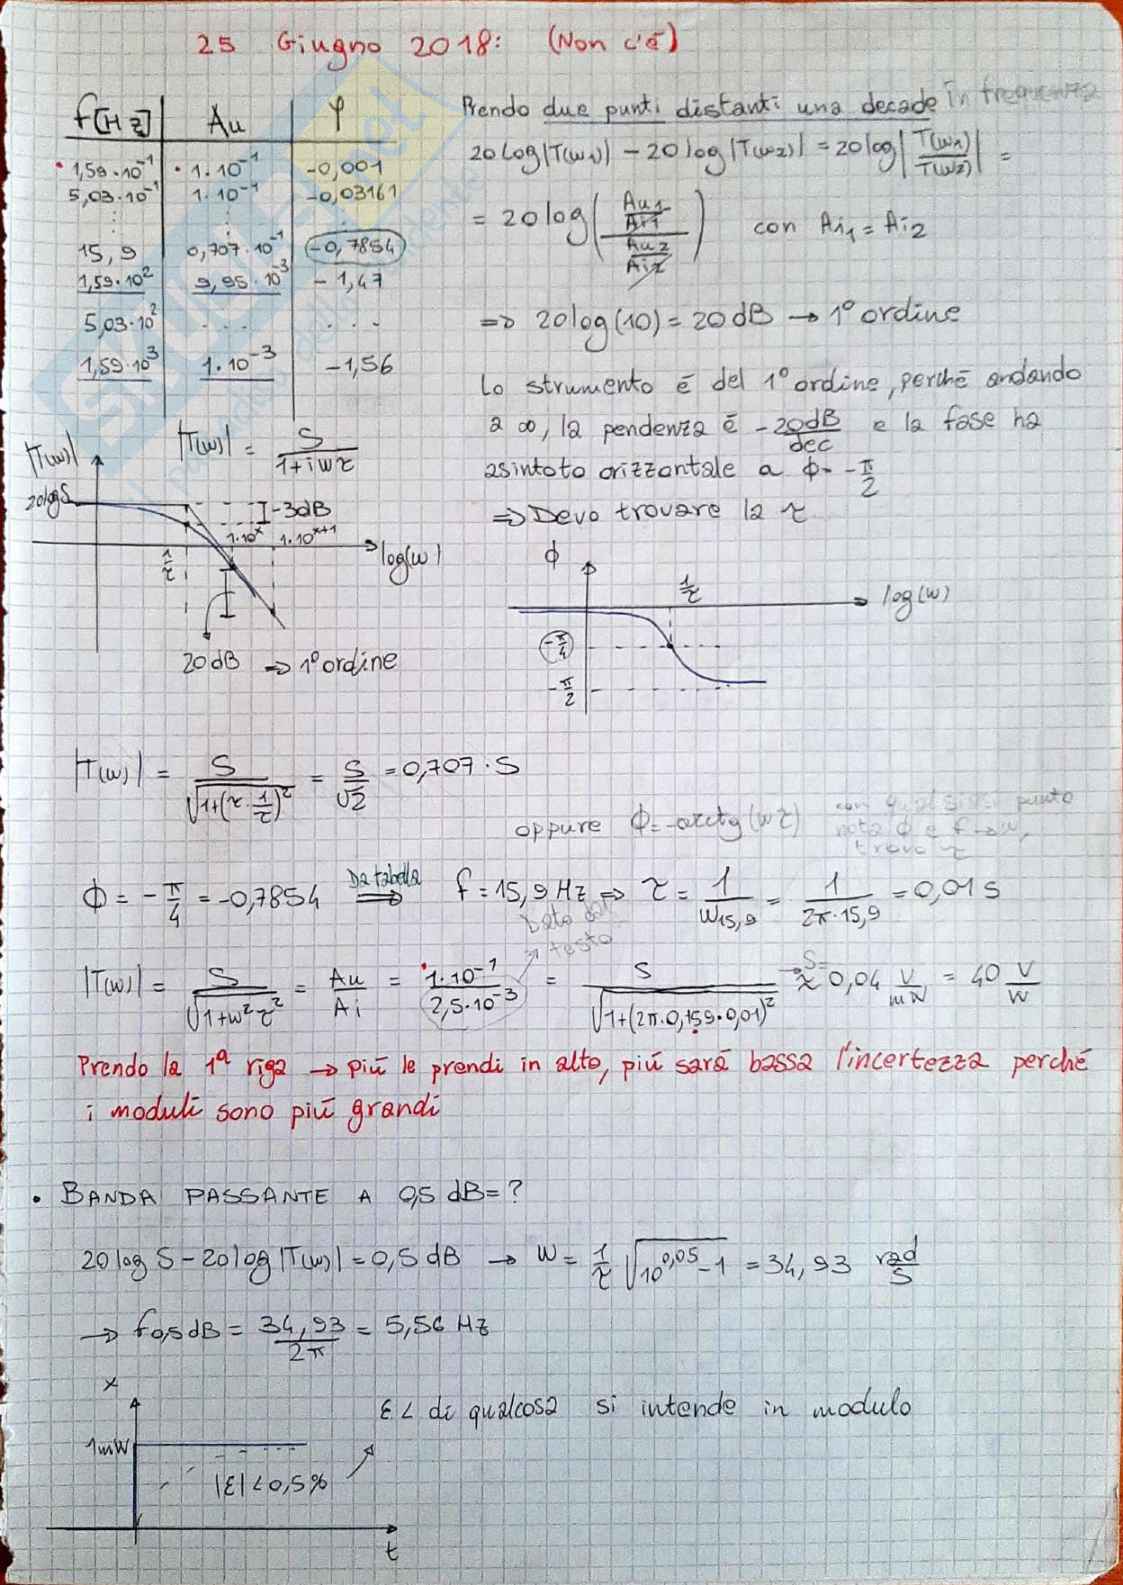 25 Giugno 2018: (Non c'é)
f[Hz] Au φ
1,59·10⁻¹ 1·10⁻¹ -0,001
5,03·10⁻¹ 1·10⁻¹ -0,03161
15,9 0,707·10⁻¹ -0,7854
1,59·10² 9,95·10⁻³ -1,47
5,03·10² ... ...
1,59·10³ 1·10⁻³ -1,56
Prendo due punti distanti una decade in frequenza
20log|T(w₁)| - 20log|T(w₂)| = 20log|T(w₁)/T(w₂)| =
= 20log((Au₁/Ai₁)/(Au₂/Ai₂)) con Ai₁ = Ai₂
⇒ 20log(10) = 20dB → 1º ordine
Lo strumento é del 1º ordine, perché andando
a ∞, la pendenza é -20dB/dec e la fase ha
asintoto orizzontale a ϕ= -π/2
⇒ Devo trovare la τ
|T(w)| = S/(1+iwτ)
|T(w)|
20logS
-3dB
1·10ˣ 1·10ˣ⁺¹
log(w)
1/τ
20dB ⇒ 1º ordine
ϕ
1/τ
log(w)
-π/4
-π/2
|T(w)| = S/√(1+(τ·1/τ)²) = S/√2 = 0,707·S
oppure ϕ=-arctg(wτ)
punto
trovo τ
ϕ = -π/4 = -0,7854 Da tabella ⇒ f = 15,9 Hz ⇒ τ = 1/w15,9 = 1/(2π·15,9) = 0,01 s
Dato dal
testo
|T(w)| = S/√(1+w²τ²) = Au/Ai = 1·10⁻¹/2,5·10⁻³ = S/√(1+(2π·0,159·0,01)²) → S= ≈ 0,04 V/mW = 40 V/W
Prendo la 1ª riga → piú le prendi in alto, piú sará bassa l'incertezza perché
i moduli sono piú grandi
• BANDA PASSANTE A 0,5 dB = ?
20logS - 20log|T(w)| = 0,5 dB → w = 1/τ √(10^0,05 - 1) = 34,93 rad/s
→ f0,5dB = 34,93/2π = 5,56 Hz
x
1mW
|ε| < 0,5%
t
ε < di qualcosa si intende in modulo